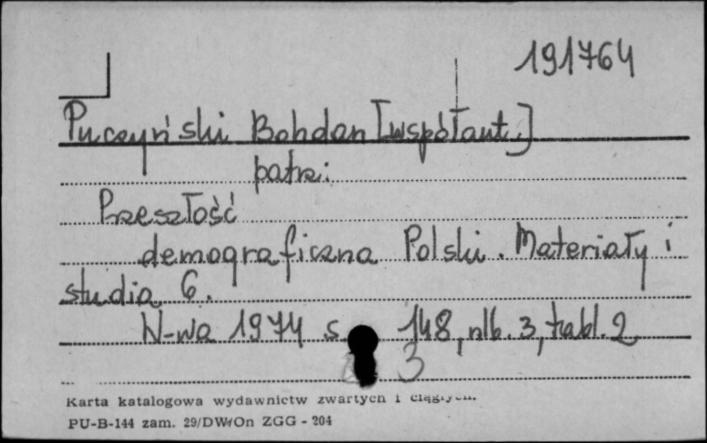 191764
Puczyński Bohdan [współaut.]
patrz:
Przeszłość
demograficzna Polski. Materiały i
studia 6.
W-wa 1974 s 148, nlb. 3, tabl. 2
3
Karta katalogowa wydawnictw zwartych i ciągłych.
PU-B-144 zam. 29/DWrOn ZGG - 204